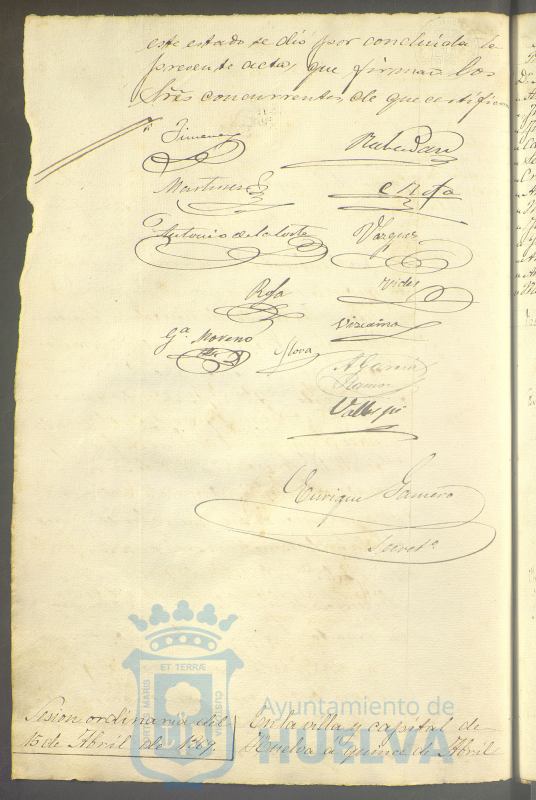 este estado se dió por concluida la
presente acta, que firman los
Sres concurrentes de que certifico
Jimenez
Martinez
Antonio de la Corte
Vazquez
Rofa
Vides
Gª Moreno
Mora
Vizcaino
A. Garcia
Ramos
Enrique Gamero
Secretº
ET TERRÆ
PORTUS MARIS
CUSTODIT
Ayuntamiento de
HUELVA
Sesion ordinaria del
15 de Abril de 1869.
En la villa y capital de
Huelva á quince de Abril